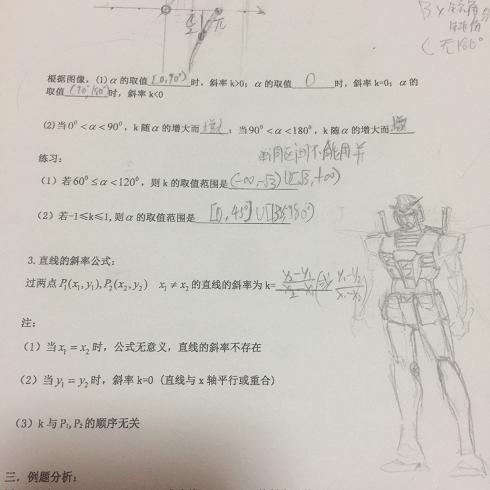 B × 生
C 无 180°
π/2 π
根据图像，(1) α 的取值 [0,90°) 时，斜率 k>0；α 的取值 0 时，斜率 k=0；α 的
取值 (90°,180°) 时，斜率 k<0
(2)当 0⁰<α<90⁰，k 随 α 的增大而 增大；当 90⁰<α<180⁰，k 随 α 的增大而 增大
练习： 单调区间不能用并
（1）若 60°≤α<120°，则 k 的取值范围是 (-∞,-√3)∪[√3,+∞)
（2）若-1≤k≤1,则 α 的取值范围是 [0,45°]∪[135°,180°)
3.直线的斜率公式：
过两点 P₁(x₁,y₁),P₂(x₂,y₂) x₁≠x₂ 的直线的斜率为 k= (y₂-y₁)/(x₂-x₁) (或 (y₁-y₂)/(x₁-x₂))
注：
（1）当 x₁=x₂ 时，公式无意义，直线的斜率不存在
（2）当 y₁=y₂ 时，斜率 k=0（直线与 x 轴平行或重合)
（3）k 与 P₁,P₂ 的顺序无关
三．例题分析：